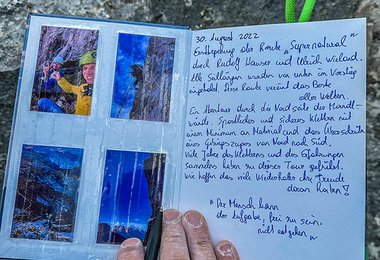 30. August 2022
Erstbegehung der Route „Supernatural"
durch Rudolf Hauser und Ulrich Wieland.
Alle Seillängen wurden von unten im Vorstieg
eingebohrt. Diese Route vereint das Beste
aller Welten.
Ein Abenteuer durch die Nordseite der Wandl-
wände. Sportliches und sicheres Klettern mit
einem Minimum an Material und das Überschreiten
eines Gebirgszuges von Nord nach Süd.
Viele Jahre des Kletterns und des Erfahrungen
sammelns haben zu dieser Tour geführt.
Wir hoffen das viele Wiederholer die Freude
daran haben!
"Der Mensch kann
der Aufgabe, frei zu sein,
nicht entgehen"